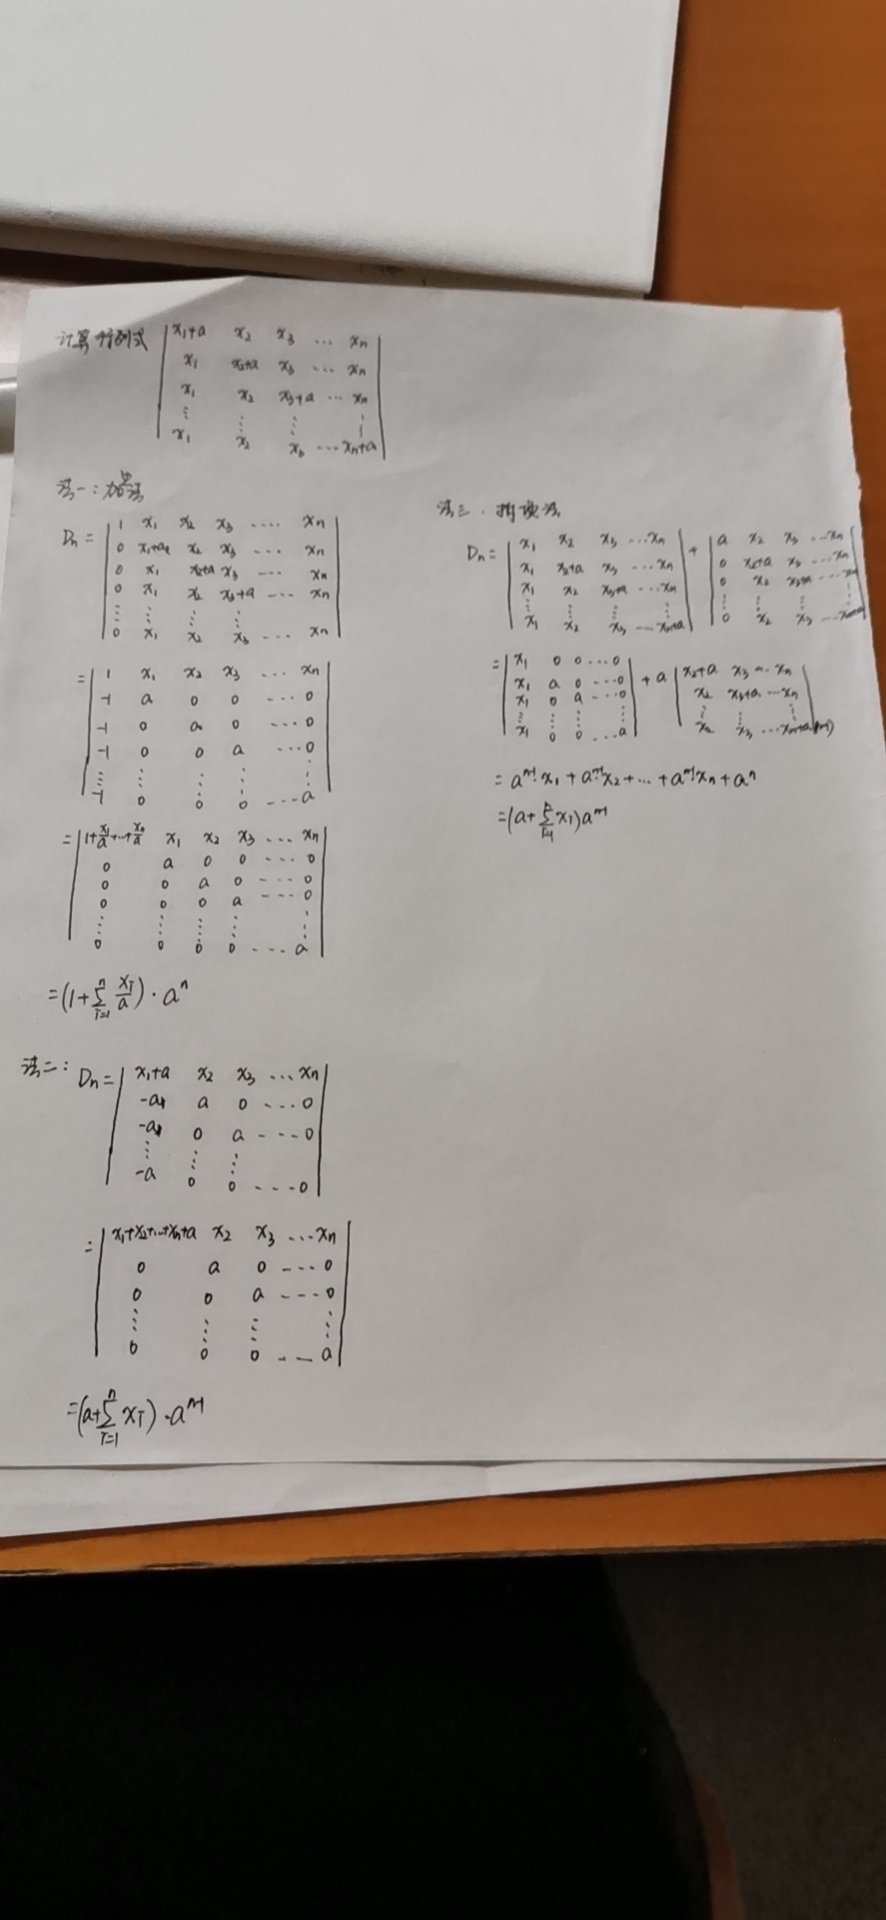 计算行列式
x₁+a x₂ x₃ … xₙ
x₁ x₂+a x₃ … xₙ
x₁ x₂ x₃+a … xₙ
⋮ ⋮ ⋮ ⋮
x₁ x₂ x₃ … xₙ+a
法一:加边法
Dₙ =
1 x₁ x₂ x₃ …. xₙ
0 x₁+a x₂ x₃ … xₙ
0 x₁ x₂+a x₃ … xₙ
0 x₁ x₂ x₃+a … xₙ
⋮ ⋮ ⋮ ⋮
0 x₁ x₂ x₃ … xₙ
=
1 x₁ x₂ x₃ … xₙ
-1 a 0 0 … 0
-1 0 a 0 … 0
-1 0 0 a … 0
⋮ ⋮ ⋮ ⋮ ⋮
-1 0 0 0 … a
=
1+x₁/a+…+xₙ/a x₁ x₂ x₃ … xₙ
0 a 0 0 … 0
0 0 a 0 … 0
0 0 0 a … 0
⋮ ⋮ ⋮ ⋮ ⋮
0 0 0 0 … a
=(1+∑ⁿᵢ₌₁ xᵢ/a)·aⁿ
法二:
Dₙ=
x₁+a x₂ x₃ … xₙ
-a a 0 … 0
-a 0 a … 0
⋮ ⋮ ⋮
-a 0 0 … 0
=
x₁+x₂+…+xₙ+a x₂ x₃ … xₙ
0 a 0 … 0
0 0 a … 0
⋮ ⋮ ⋮ ⋮
0 0 0 … a
=(a+∑ⁿᵢ₌₁ xᵢ)·aⁿ⁻¹
法三.
Dₙ=
x₁ x₂ x₃ … xₙ + a x₂ x₃ … xₙ
x₁ x₂+a x₃ … xₙ 0 x₂+a x₃ … xₙ
x₁ x₂ x₃+a … xₙ 0 x₂ x₃+a … xₙ
⋮ ⋮ ⋮ ⋮ ⋮ ⋮ ⋮
x₁ x₂ x₃ … xₙ+a 0 x₂ x₃ … xₙ+a
=
x₁ 0 0 … 0 + a x₂+a x₃ … xₙ
x₁ a 0 … 0 x₂ x₃+a … xₙ
x₁ 0 a … 0
⋮ ⋮ ⋮ ⋮ ⋮ ⋮
x₁ 0 0 … a x₂ x₃ … xₙ+a
= aⁿ⁻¹·x₁+aⁿ⁻¹x₂+…+aⁿ⁻¹xₙ+aⁿ
=(a+∑ⁿᵢ₌₁ xᵢ)aⁿ⁻¹